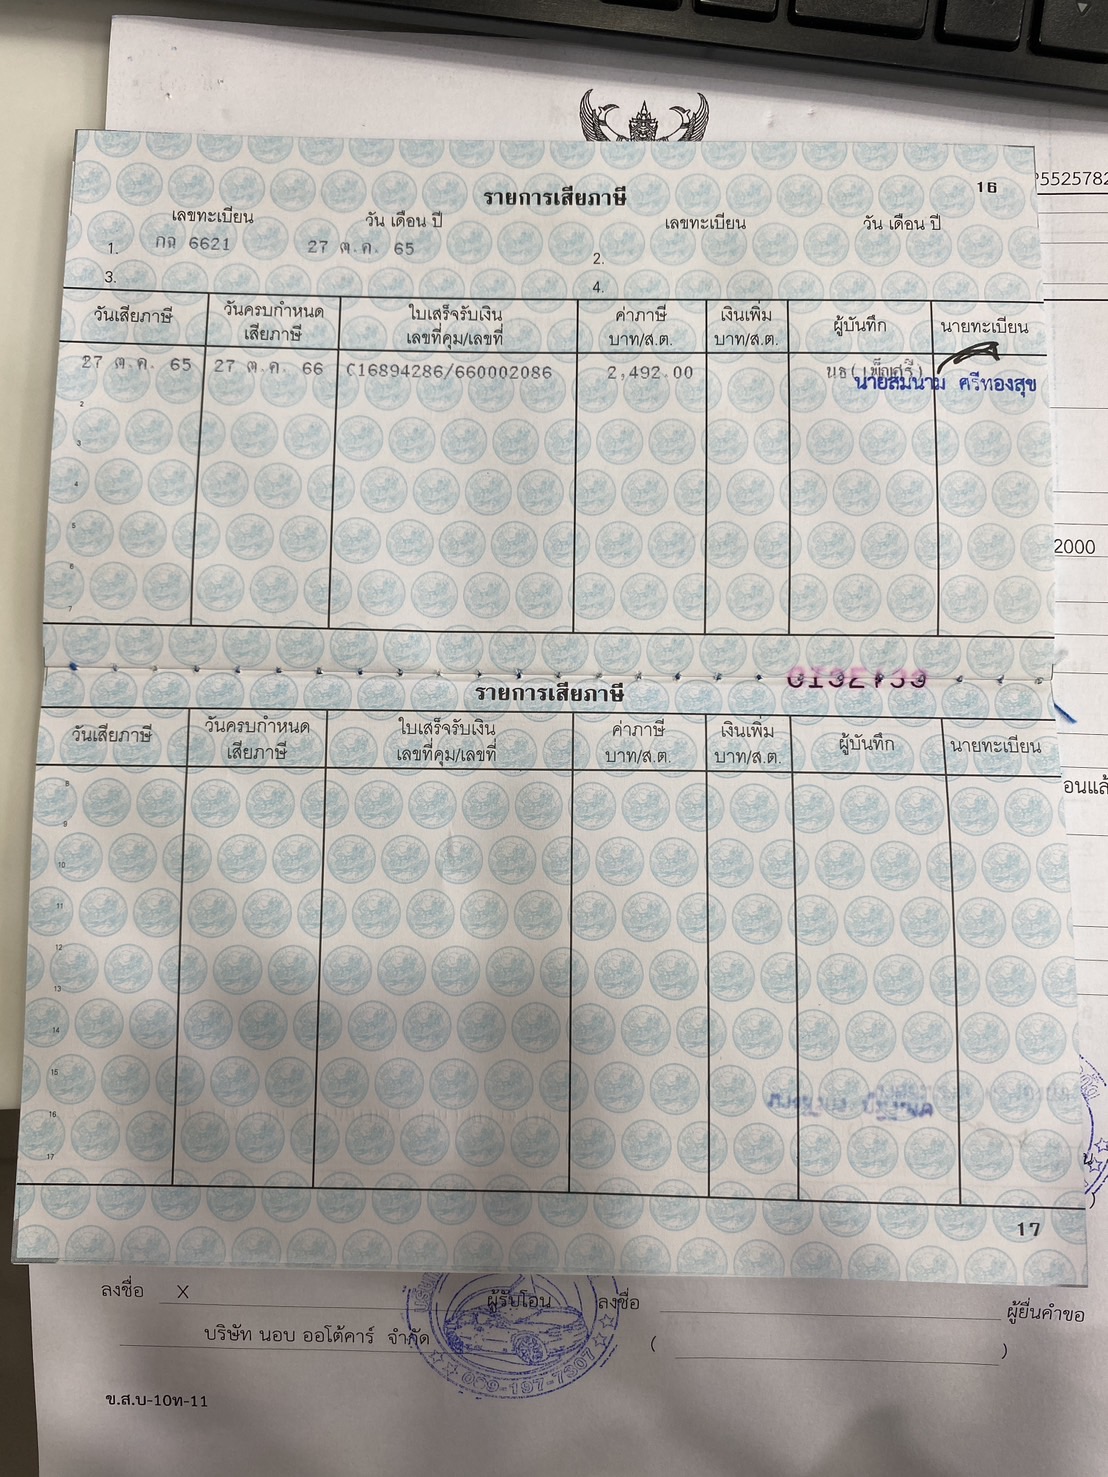 P5525782
16
รายการเสียภาษี
เลขทะเบียน วัน เดือน ปี เลขทะเบียน วัน เดือน ปี
1. กฉ 6621 27 ต.ค. 65 2.
3. 4.
วันเสียภาษี วันครบกำหนด เสียภาษี ใบเสร็จรับเงิน เลขที่คุม/เลขที่ ค่าภาษี บาท/ส.ต. เงินเพิ่ม บาท/ส.ต. ผู้บันทึก นายทะเบียน
27 ต.ค. 65 27 ต.ค. 66 C16894286/660002086 2,492.00 นธ(เพ็ญศรี)
นายสมนาม ศรีทองสุข
2
3
4
2000
5
6
7
รายการเสียภาษี
วันเสียภาษี วันครบกำหนด เสียภาษี ใบเสร็จรับเงิน เลขที่คุม/เลขที่ ค่าภาษี บาท/ส.ต. เงินเพิ่ม บาท/ส.ต. ผู้บันทึก นายทะเบียน
8
9
10
11
12
13
14
15
16
17
17
ลงชื่อ X ผู้รับโอน ลงชื่อ ผู้ยื่นคำขอ
บริษัท นอบ ออโต้คาร์ จำกัด ( )
099-197-7307
ข.ส.บ-10ท-11